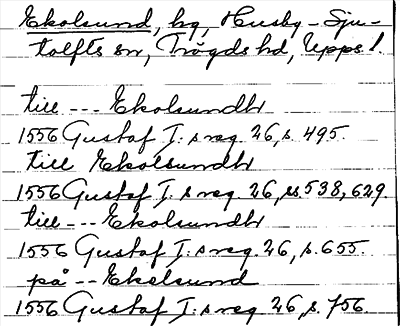 Ekolsund, hg, Husby-Sju-
tolfts sn, Trögds hd, Upps l.
till --- Ekolsundh
1556 Gustaf I:s reg. 26, s. 495.
till Ekolsundh
1556 Gustaf I:s reg. 26, ss. 538, 629.
till --- Ekolsundh
1556 Gustaf I:s reg. 26, s. 655.
på -- Ekolsund
1556 Gustaf I:s reg. 26, s. 756.